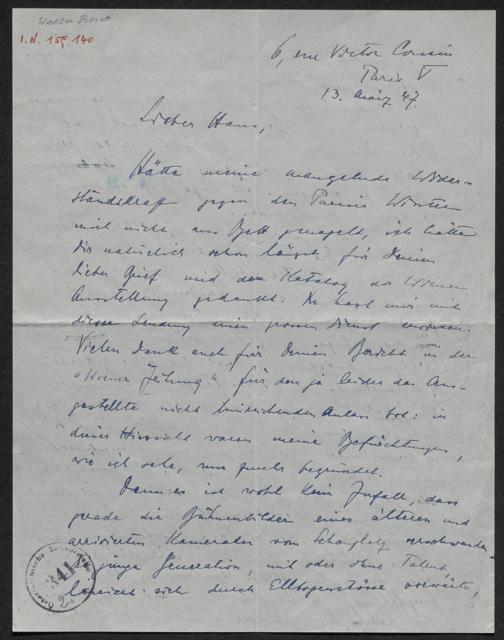 Walter Fürst
I.N. 159 140
6, rue Victor Cousin
Paris V
13. März 47.
Lieber Hans,
Hätte meine mangelnde Wider-
standskraft gegen den Pariser Winter
mich nicht ans Bett genagelt, ich hätte
Dir natürlich schon längst für Deinen
lieben Brief und den Katalog der Wiener
Ausstellung gedankt. Du hast mir mit
dieser Sendung einen grossen Dienst erwiesen.
Vielen Dank auch für Deinen Bericht in der
"Wiener Zeitung" für den ja leider das Aus-
gestellte nicht hinreichenden Anlass bot: in
dieser Hinsicht waren meine Befürchtungen,
wie ich sehe, nur zu sehr begründet.
Denn es ist wohl kein Zufall, dass
gerade die Bühnenbilder eines älteren und
arrivierten Kameraden vom Schauplatz verschwanden
junge Generation, mit oder ohne Talent
sich durch Ellbogenstösse vorwärts,
341